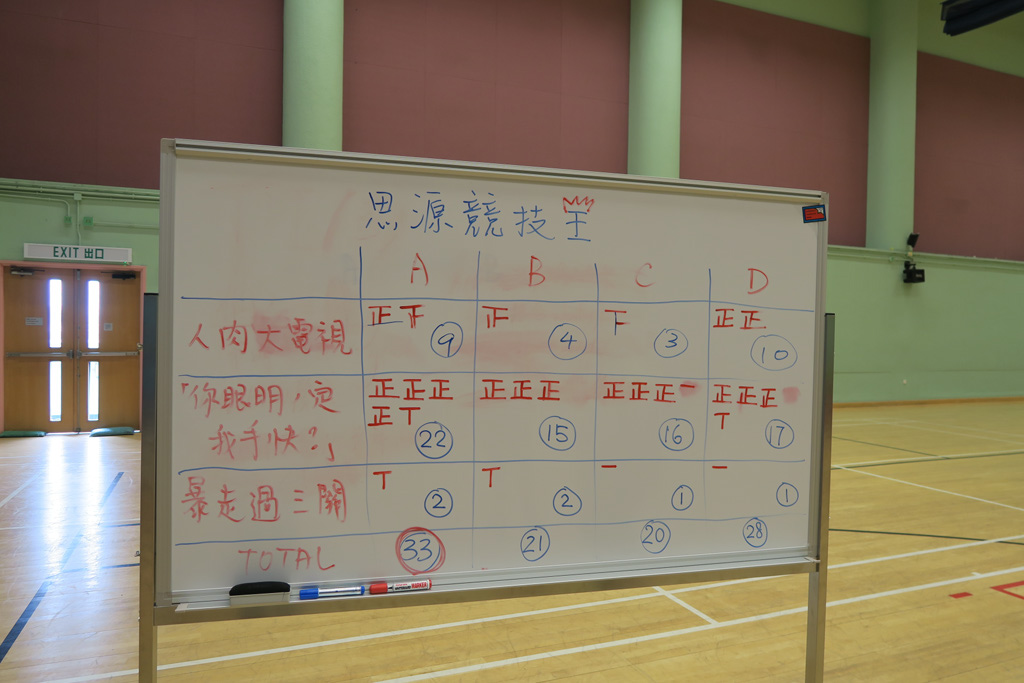 思源競技王
EXIT 出口
A B C D
人肉大電視 正正 9 正 4 下 3 正正 10
「你眼明，定 正正正 正正正 正正正一 正正正
我手快？」 正T 22 15 16 T 17
暴走過三關 T 2 T 2 一 1 一 1
TOTAL 33 21 20 28
MARKER